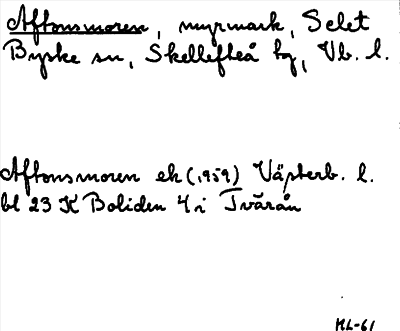 Aftonsmoren, myrmark, Selet
Byske sn, Skellefteå tg, Vb. l.
Aftonsmoren ek (1959) Västerb. l.
bl 23 K Boliden 4 i Tvärån
HL-61